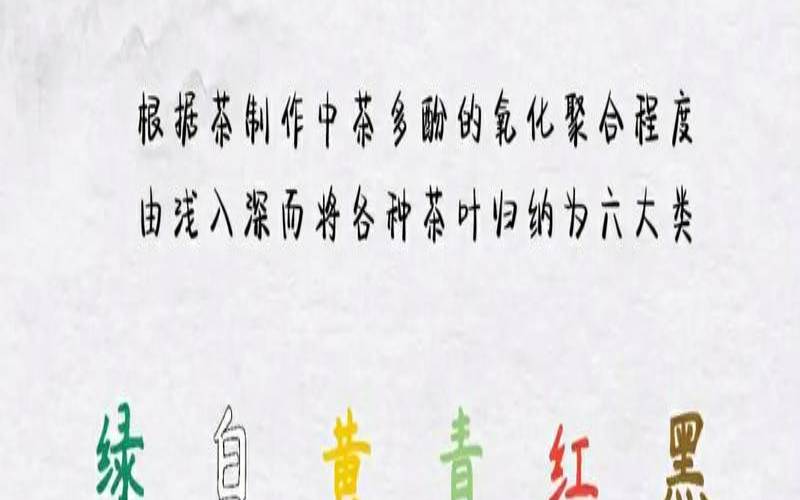 根据茶制作中茶多酚的氧化聚合程度
由浅入深而将各种茶叶归纳为六大类
绿 白 黄 青 红 黑